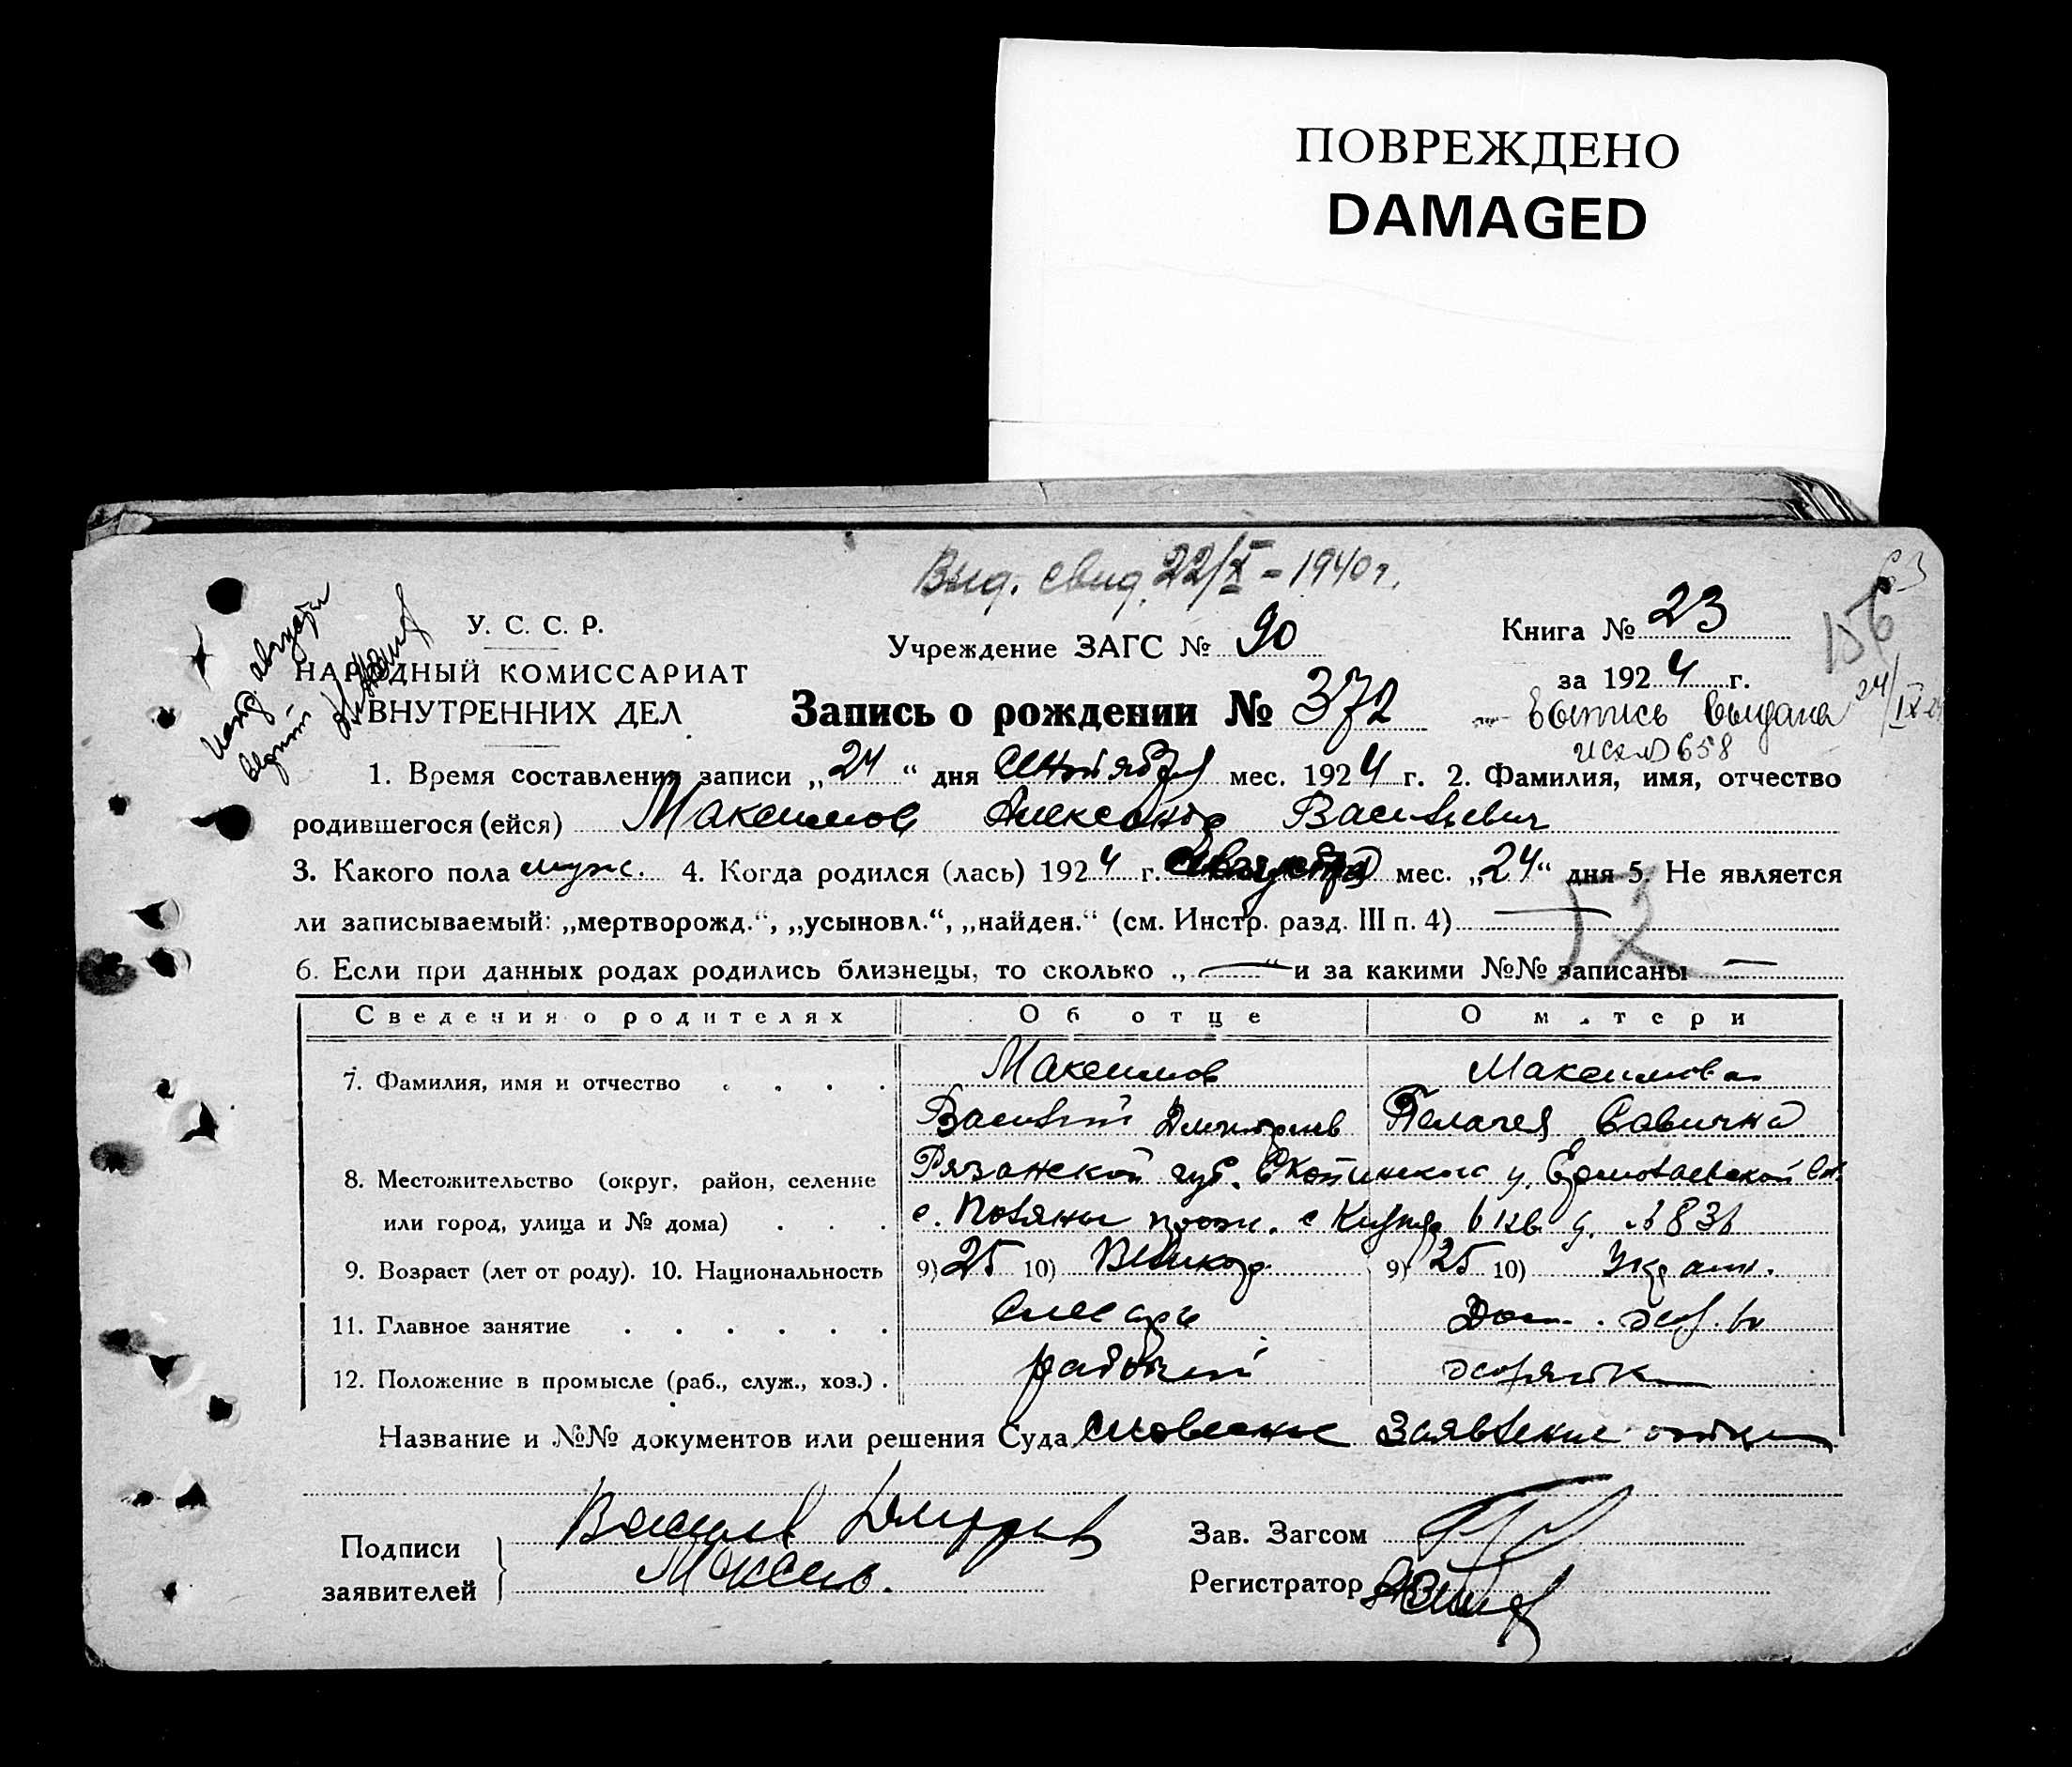 ПОВРЕЖДЕНО
DAMAGED
Выд. свид. 22/X - 1940 г.
63
156
У. С. С. Р.
НАРОДНЫЙ КОМИССАРИАТ
ВНУТРЕННИХ ДЕЛ
Учреждение ЗАГС № 90
Книга № 23
за 1924 г.
Запись о рождении № 372
Выпись выдана 24/IX-24
исх № 658
1. Время составления записи „24“ дня Сентября мес. 1924 г. 2. Фамилия, имя, отчество
родившегося (ейся) Максимов Александр Васильевич
3. Какого пола муж. 4. Когда родился (лась) 1924 г. Августа мес. „24“ дня 5. Не является
ли записываемый: „мертворожд.“, „усыновл.“, „найден.“ (см. Инстр. разд. III п. 4) —
52
6. Если при данных родах родились близнецы, то сколько „—“ и за какими №№ записаны —
Сведения о родителях Об отце О матери
7. Фамилия, имя и отчество Максимов Максимова
Василий Дмитриев Пелагея Савична
8. Местожительство (округ, район, селение Рязанской губ. Скопинского у.
или город, улица и № дома) с. прож. с
9. Возраст (лет от роду). 10. Национальность 9) 25 10) Великор. 9) 25 10) Украин.
11. Главное занятие Слесарь Дом. хоз.
12. Положение в промысле (раб., служ., хоз.) рабочий хозяйка
Название и №№ документов или решения Суда Словесное Заявление отца
Подписи
заявителей
Максим.
Зав. Загсом
Регистратор